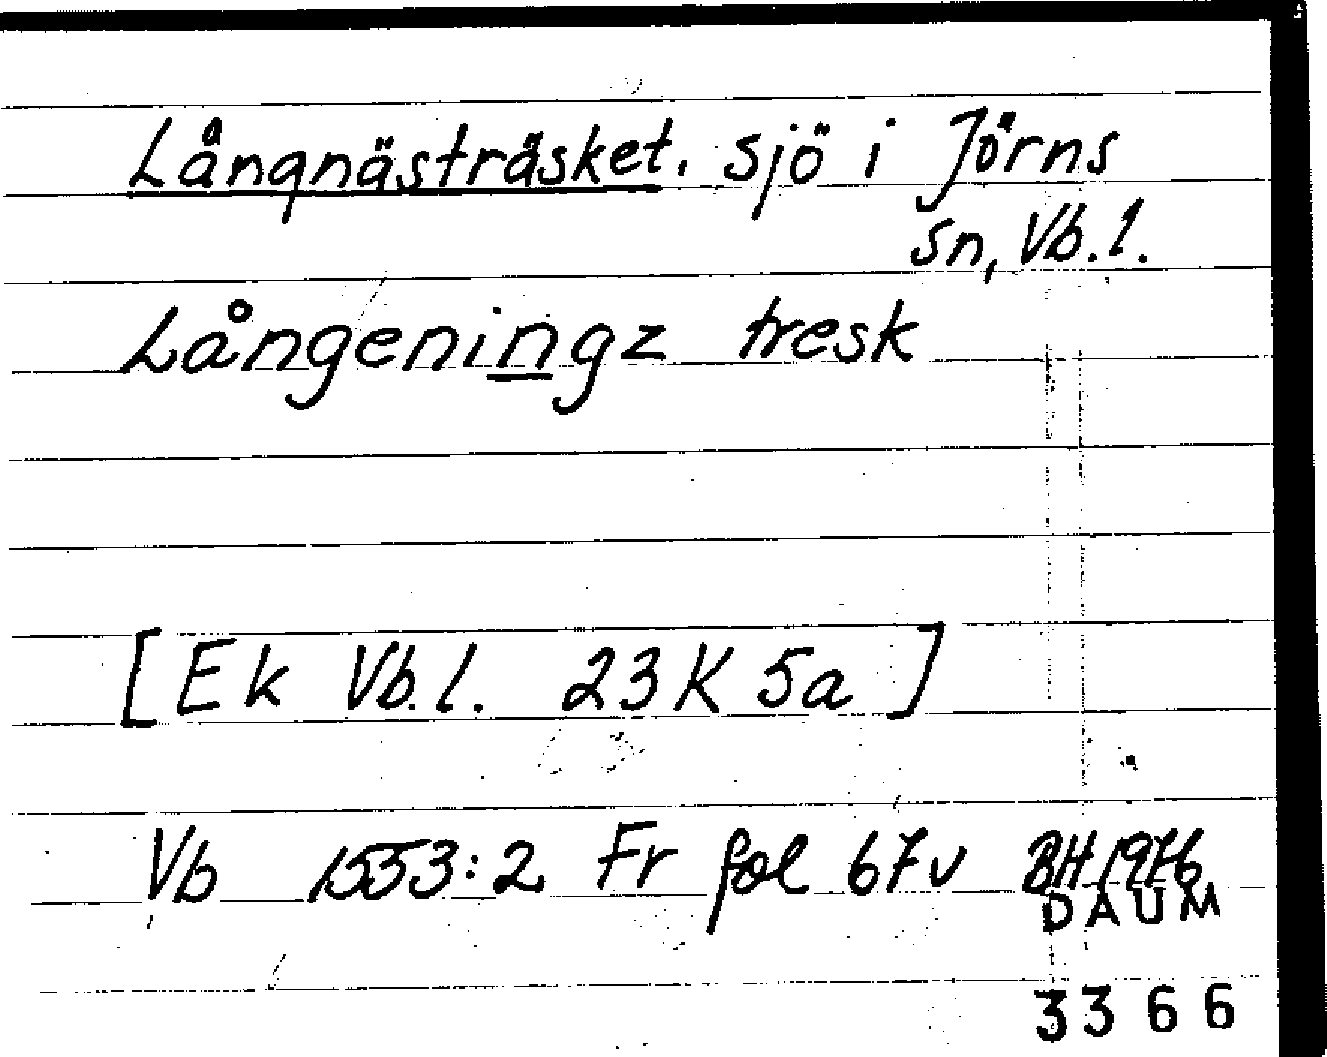 Långnästräsket, sjö i Jörns
sn, Vb.l.
Långeningz tresk
[Ek Vb.l. 23K 5a]
Vb 1553:2 Fr fol 67v BH 1976
DAUM
3366